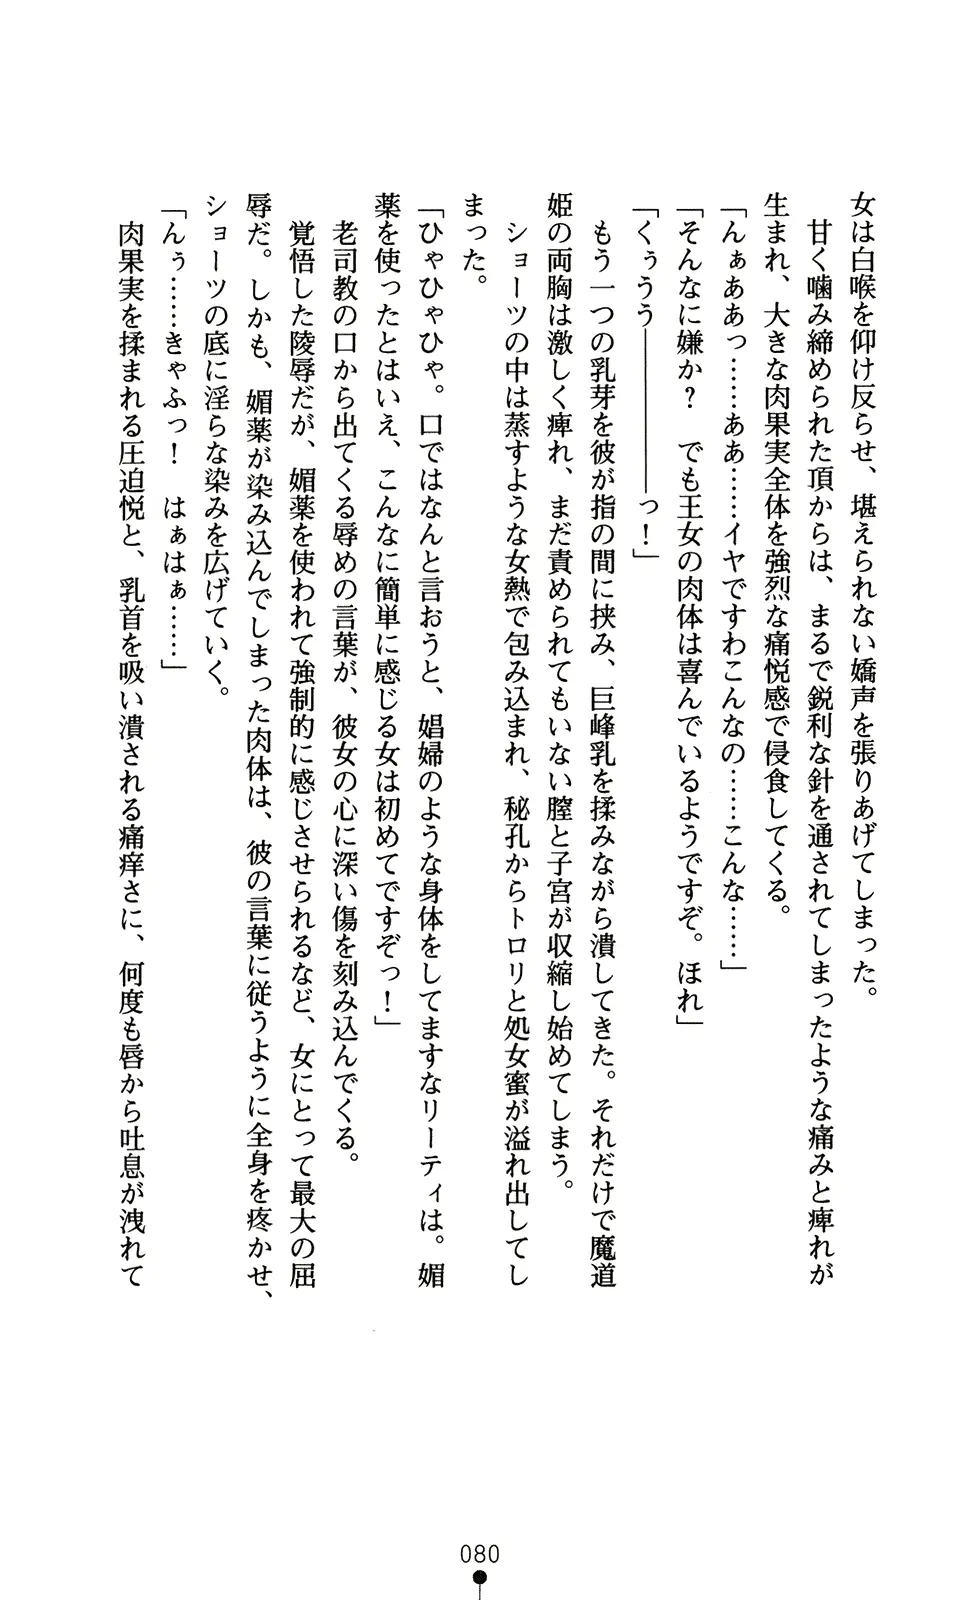 女は白喉を仰け反らせ、堪えられない嬌声を張りあげてしまった。
甘く噛み締められた頂からは、まるで鋭利な針を通されてしまったような痛みと痺れが
生まれ、大きな肉果実全体を強烈な痛悦感で侵食してくる。
「んぁああっ……ああ……イヤですわこんなの……こんな……」
「そんなに嫌か？　でも王女の肉体は喜んでいるようですぞ。ほれ」
「くぅうう――――――っ！」
もう一つの乳芽を彼が指の間に挟み、巨峰乳を揉みながら潰してきた。それだけで魔道
姫の両胸は激しく痺れ、まだ責められてもいない膣と子宮が収縮し始めてしまう。
ショーツの中は蒸すような女熱で包み込まれ、秘孔からトロリと処女蜜が溢れ出してし
まった。
「ひゃひゃひゃ。口ではなんと言おうと、娼婦のような身体をしてますなリーティは。媚
薬を使ったとはいえ、こんなに簡単に感じる女は初めてですぞっ！」
老司教の口から出てくる辱めの言葉が、彼女の心に深い傷を刻み込んでくる。
覚悟した陵辱だが、媚薬を使われて強制的に感じさせられるなど、女にとって最大の屈
辱だ。しかも、媚薬が染み込んでしまった肉体は、彼の言葉に従うように全身を疼かせ、
ショーツの底に淫らな染みを広げていく。
「んぅ……きゃふっ！　はぁはぁ……」
肉果実を揉まれる圧迫悦と、乳首を吸い潰される痛痒さに、何度も唇から吐息が洩れて
080